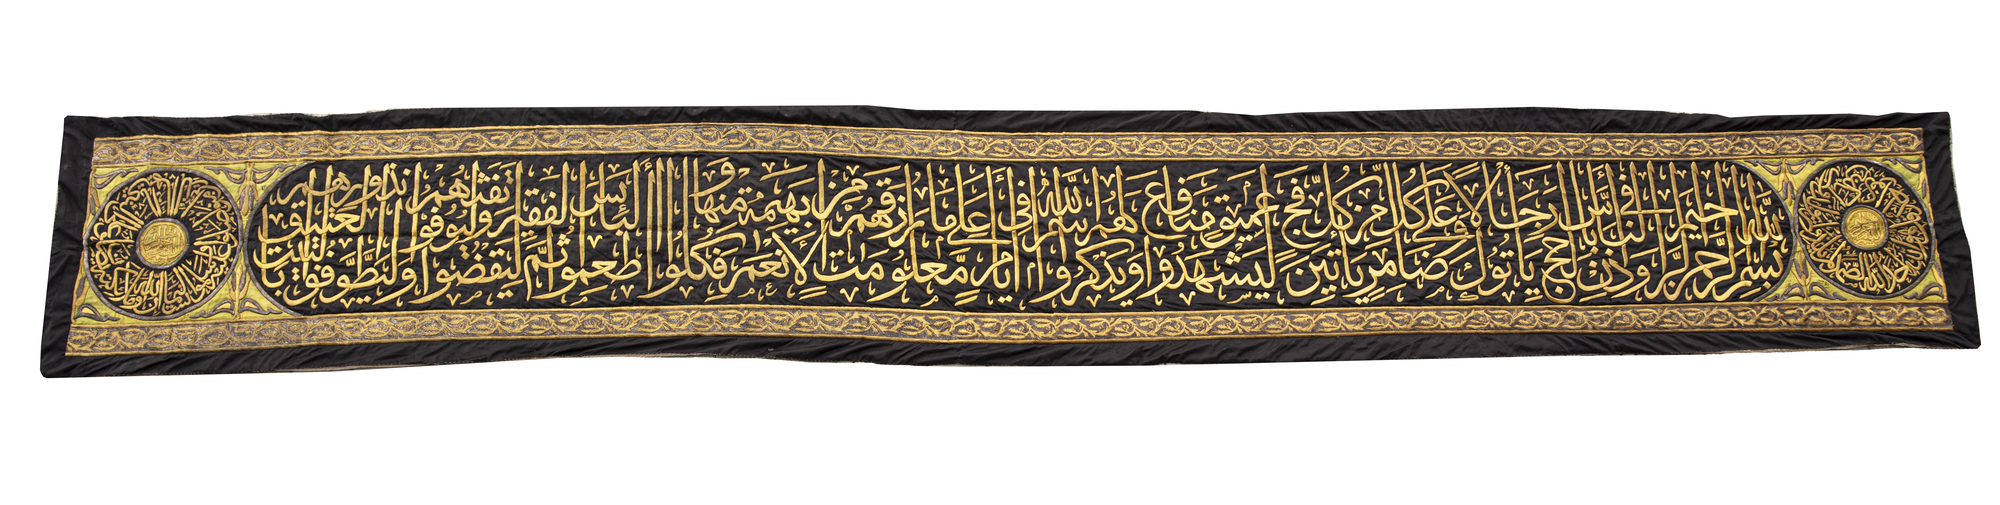 بسم الله الرحمن الرحيم وأذن في الناس بالحج يأتوك رجالا وعلى كل ضامر يأتين من كل فج عميق ليشهدوا منافع لهم ويذكروا اسم الله في أيام معلومات على ما رزقهم من بهيمة الأنعم فكلوا منها وأطعموا البائس الفقير ثم ليقضوا تفثهم وليوفوا نذورهم وليطوفوا بالبيت العتيق